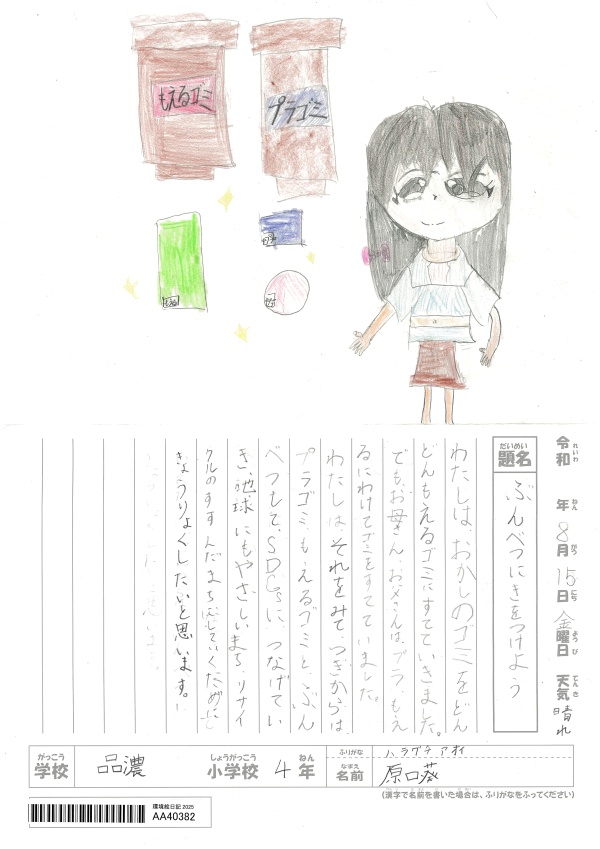 もえるゴミ
プラゴミ
令和 年 8月 15日 金曜日 天気 晴れ
れいわ ねん がつ にち ようび てんき
だいめい
題名
ぶんべつにきをつけよう
わたしは、おかしのゴミをどん
どんもえるゴミにすてていきました。
でも、お母さん、お父さんは、プラ、もえ
るにわけてゴミをすてていました。
わたしは、それをみて、つぎからは、
プラゴミ、もえるゴミと、ぶん
べつして、SDGsに、つなげてい
き、地球にもやさしいまち、リサイ
クルのすすんだまちにしていくために
きょうりょくしたいと思います。
がっこう
学校
品濃
しょうがっこう
小学校
4
ねん
年
ふりがな
ハラグチ アオイ
なまえ
名前
原口葵
(漢字で名前を書いた場合は、ふりがなをふってください)
環境絵日記 2025
AA40382